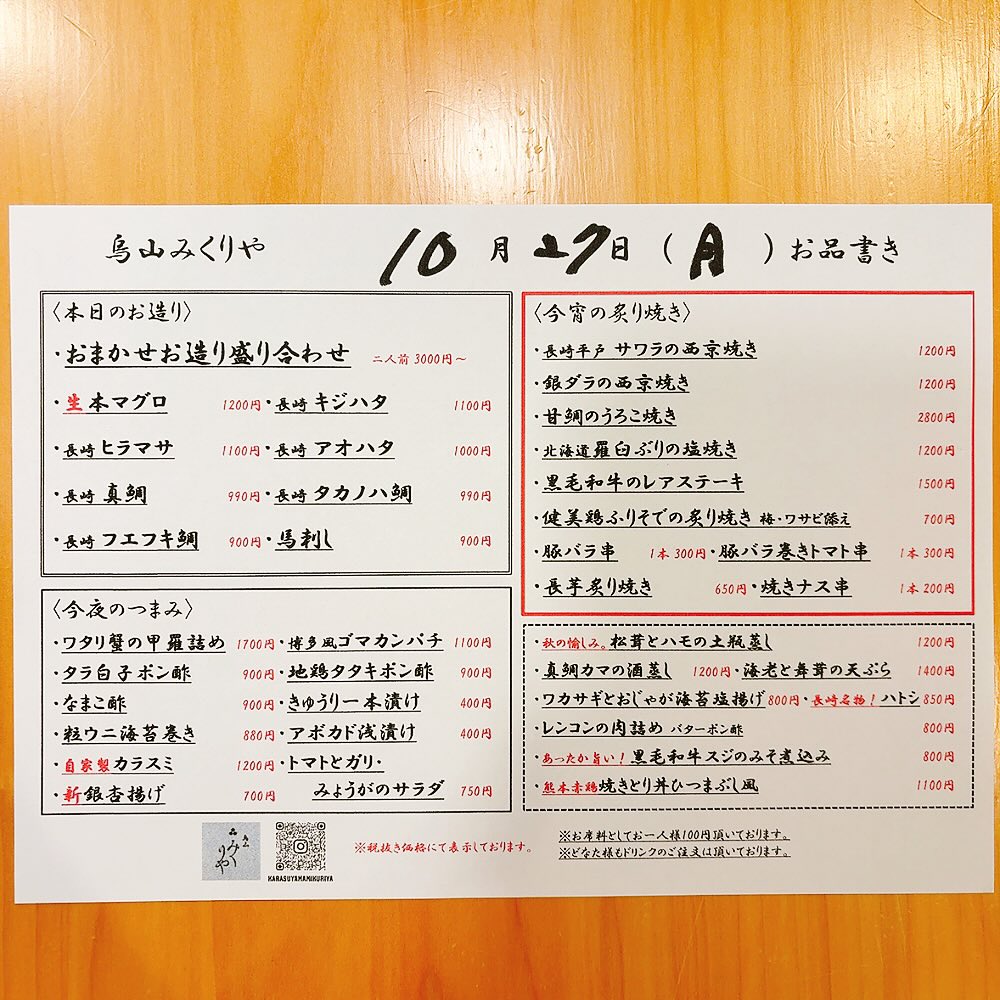 烏山みくりや 10月27日(月)お品書き
〈本日のお造り〉
・おまかせお造り盛り合わせ 二人前3000円〜
・生本マグロ 1200円・長崎キジハタ 1100円
・長崎ヒラマサ 1100円・長崎アオハタ 1000円
・長崎真鯛 990円・長崎タカノハ鯛 990円
・長崎フエフキ鯛 900円・馬刺し 900円
〈今夜のつまみ〉
・ワタリ蟹の甲羅詰め 1700円・博多風ゴマカンパチ 1100円
・タラ白子ポン酢 900円・地鶏タタキポン酢 900円
・なまこ酢 900円・きゅうり一本漬け 400円
・粒ウニ海苔巻き 880円・アボカド浅漬け 400円
・自家製カラスミ 1200円・トマトとガリ・
・新銀杏揚げ 700円 みょうがのサラダ 750円
〈今宵の炙り焼き〉
・長崎平戸 サワラの西京焼き 1200円
・銀ダラの西京焼き 1200円
・甘鯛のうろこ焼き 2800円
・北海道羅臼ぶりの塩焼き 1200円
・黒毛和牛のレアステーキ 1500円
・健美鶏ふりそでの炙り焼き 梅・ワサビ添え 700円
・豚バラ串 1本300円・豚バラ巻きトマト串 1本300円
・長芋炙り焼き 650円・焼きナス串 1本200円
・秋の愉しみ。松茸とハモの土瓶蒸し 1200円
・真鯛カマの酒蒸し 1200円・海老と舞茸の天ぷら 1400円
・ワカサギとおじゃが海苔塩揚げ 800円・長崎名物！ハトシ 850円
・レンコンの肉詰め バターポン酢 800円
・あったか旨い！黒毛和牛スジのみそ煮込み 800円
・熊本赤鶏焼きとり丼ひつまぶし風 1100円
みくりや
KARASUYAMAMIKURIYA
※税抜き価格にて表示しております。
※お席料としてお一人様100円頂いております。
※どなた様もドリンクのご注文は頂いております。